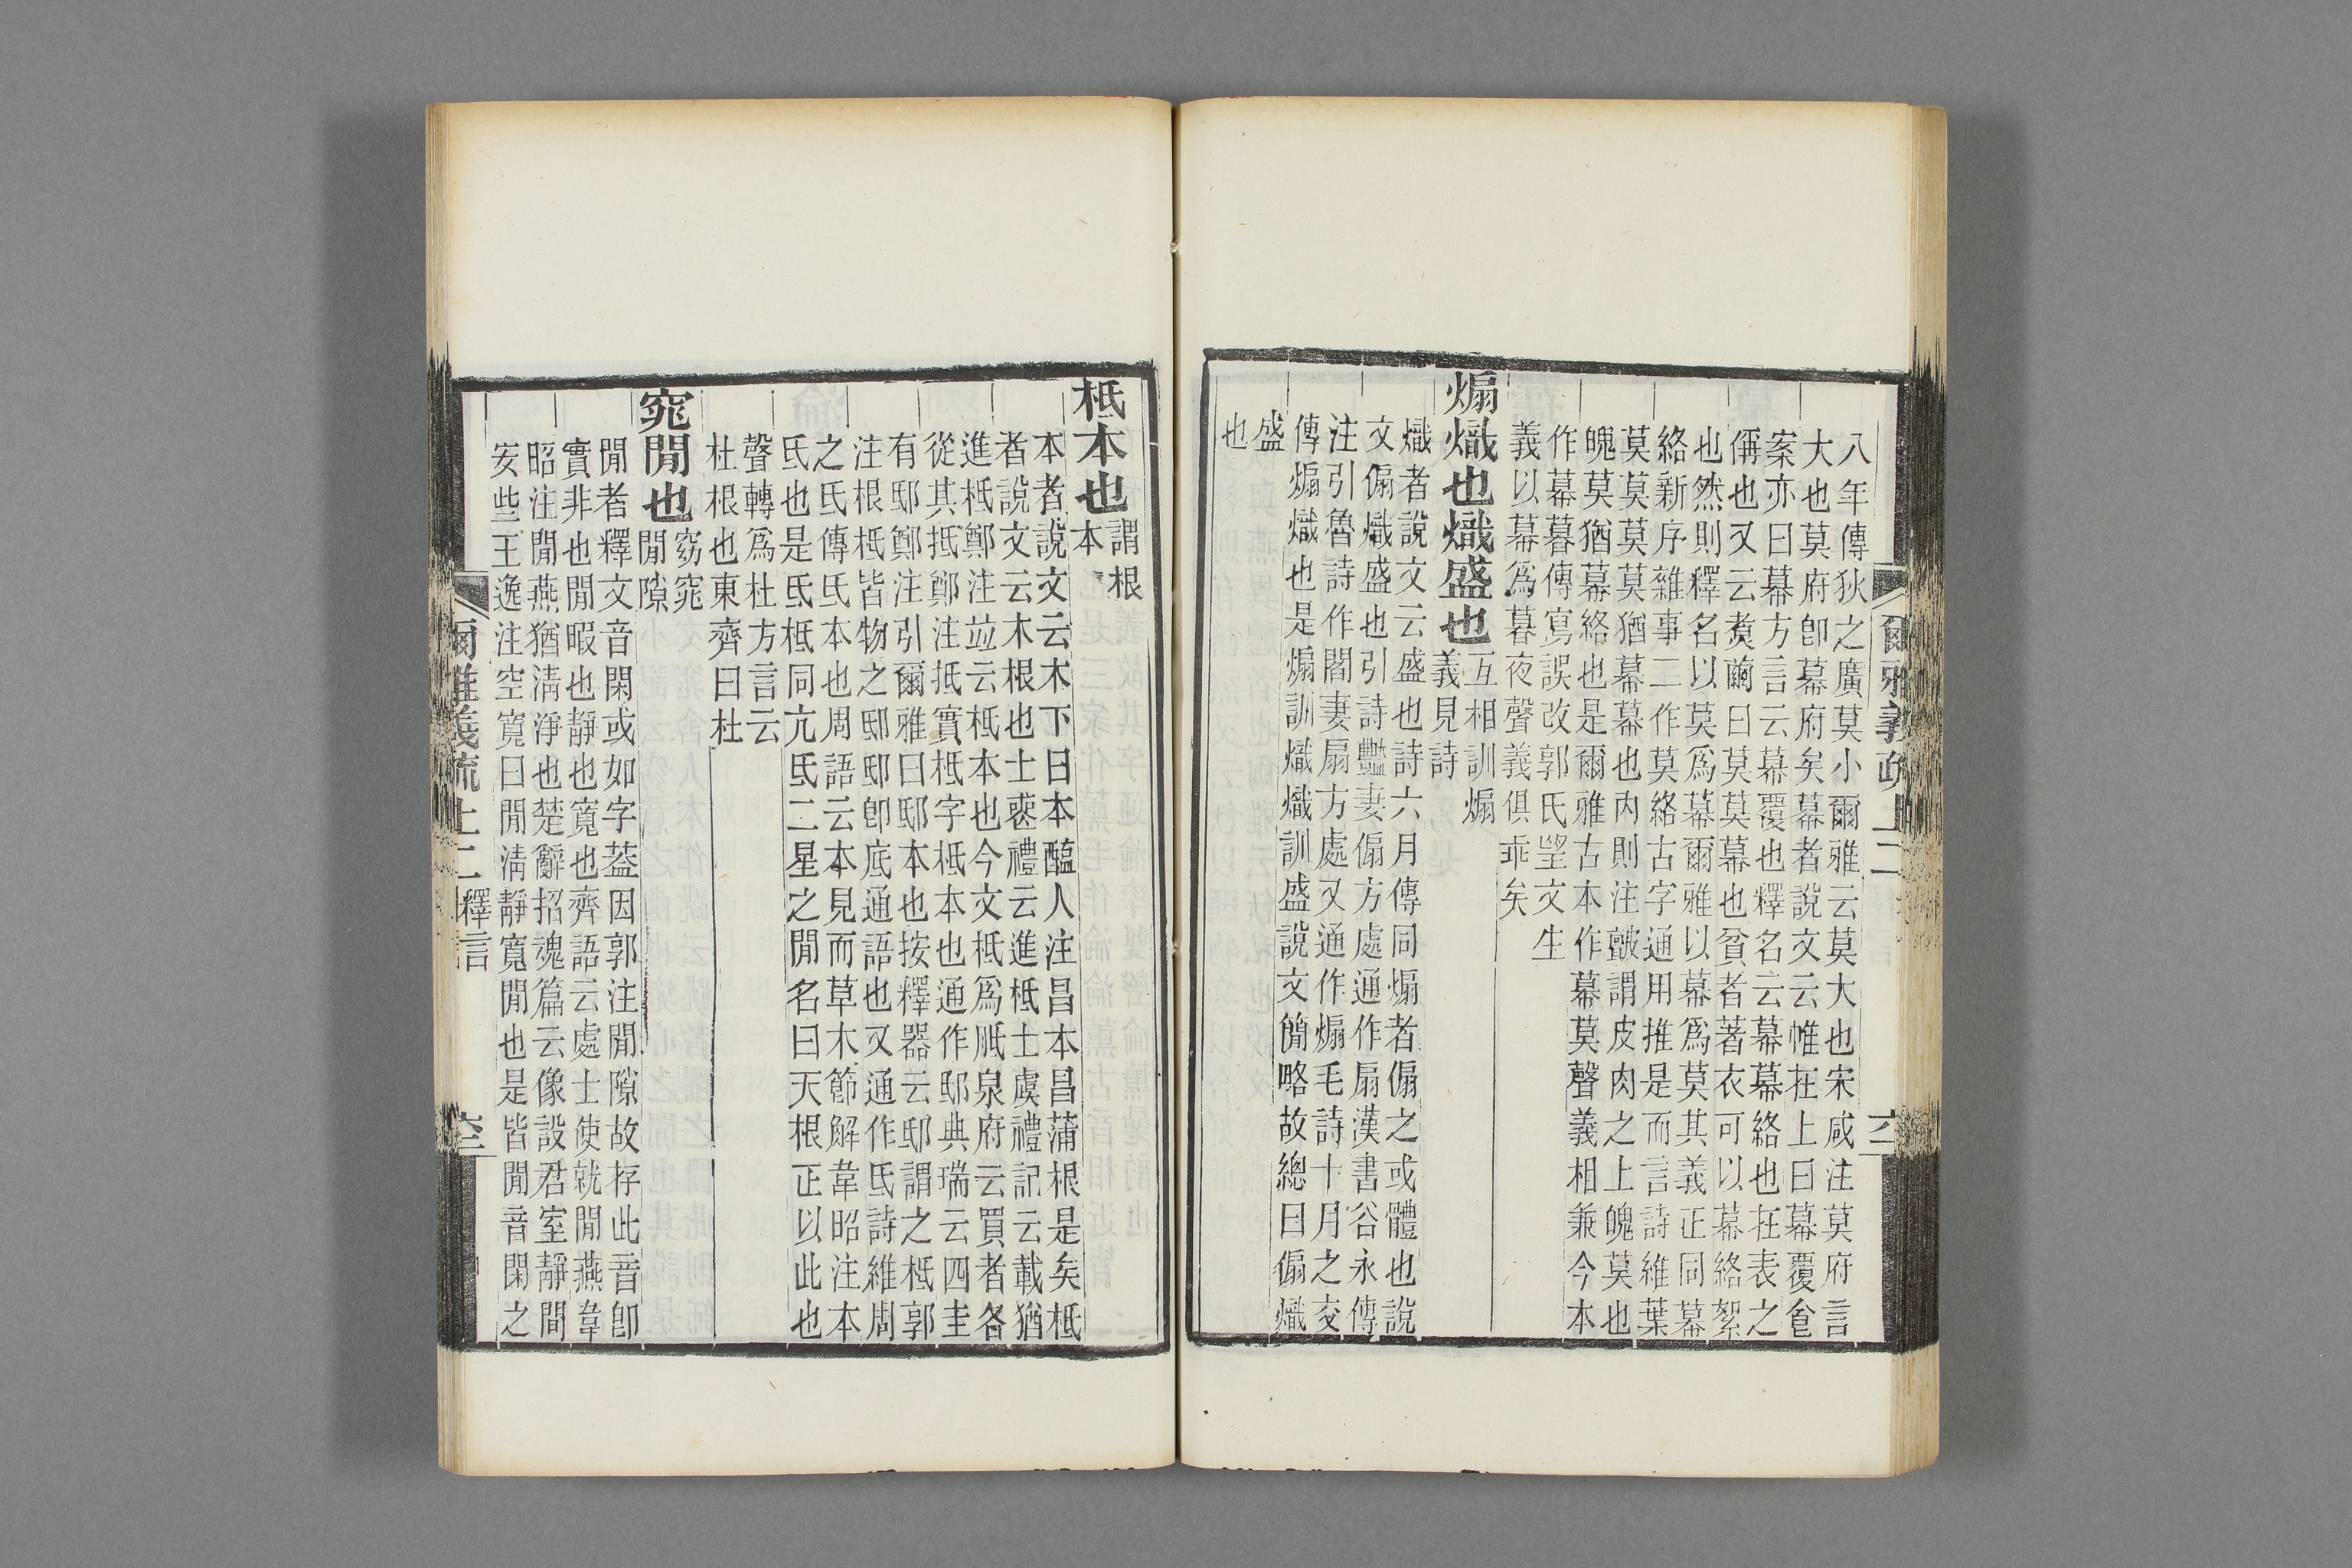 八年傳狄之廣莫小爾雅云莫大也宋咸注莫府言
大也莫府卽幕府矣幕者說文云帷在上曰幕覆㒵
案亦曰幕方言云幕覆也釋名云幕幕絡也在表之
偁也又云煑繭曰莫莫幕也貧者著衣可以幕絡絮
也然則釋名以莫爲幕爾雅以幕爲莫其義正同幕
絡新序雜事二作莫絡古字通用推是而言詩維葉
莫莫莫莫猶幕幕也內則注皽謂皮肉之上魄莫也
魄莫猶幕絡也是爾雅古本作幕莫聲義相兼今本
作幕暮傳寫誤改郭氏望文生
義以幕爲暮夜聲義俱乖矣
煽熾也熾盛也
互相訓煽
義見詩
熾者說文云盛也詩六月傳同煽者傓之或體也說
文傓熾盛也引詩豔妻傓方處通作扇漢書谷永傳
注引魯詩作閻妻扇方處又通作煽毛詩十月之交
傳煽熾也是煽訓熾熾訓盛說文簡略故總曰傓熾
盛
也
爾雅義疏上二
柢本也
謂根
本
本者說文云木下曰本醢人注昌本昌蒲根是矣柢
者說文云木根也士喪禮云進柢士虞禮記云載猶
進柢鄭注竝云柢本也今文柢爲胝泉府云買者各
從其抵鄭注抵實柢字柢本也通作邸典瑞云四圭
有邸鄭注引爾雅曰邸本也按釋器云邸謂之柢郭
注根柢皆物之邸邸卽底通語也又通作氐詩維周
之氐傳氐本也周語云本見而草木節解韋昭注本
氐也是氐柢同亢氐二星之閒名曰天根正以此也
聲轉爲杜方言云
杜根也東齊曰杜
窕閒也
窈窕
閒隙
閒者釋文音閑或如字葢因郭注閒隙故存此音卽
實非也閒暇也靜也寬也齊語云處士使就閒燕韋
昭注閒燕猶淸淨也楚辭招魂篇云像設君室靜閒
安些王逸注空寬曰閒淸靜寬閒也是皆閒音閑之
爾雅義疏上二 釋言